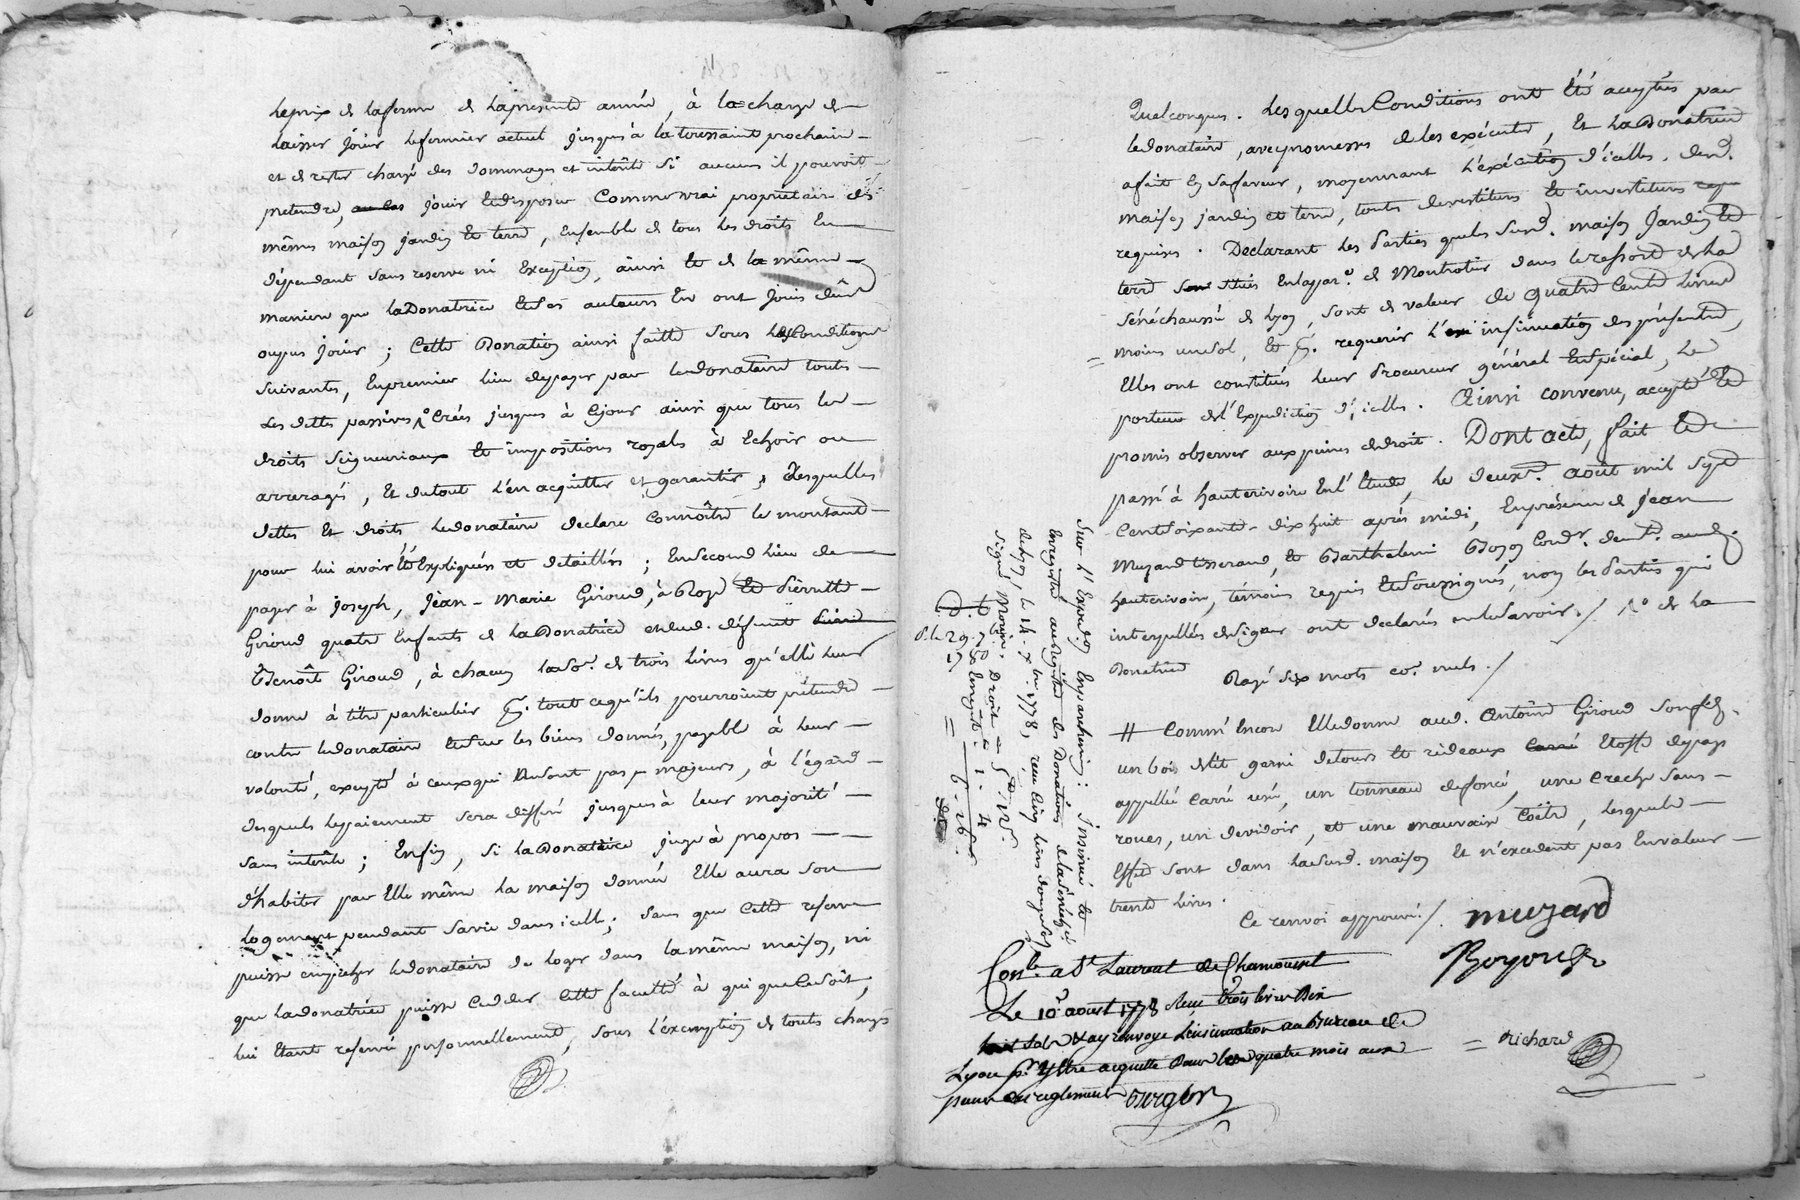 Le prix de la ferme de la presente année, à la charge de
laisser jouir le fermier actuel jusques à la toussaint prochain
et de rester chargé des dommages et intérêts si aucuns il pouvoit
pretendre, jouir et disposer comme vrai proprietaire des
mêmes maison jardin et terre, ensemble de tous les droits en
dépendant sans reserve ni exception, ainsi et de la même
maniere que la Donatrice et ses auteurs en ont joui dû
ou pu jouir ; cette Donation ainsi faitte sous les conditions
suivantes, en premier lieu de payer par le donataire toutes
les dettes passives crées jusques à ce jour ainsi que tous les
droits seigneuriaux et impositions royales à echoir ou
arreragés, et du tout l'en acquitter et garantir ; desquelles
dettes et droits le donataire declare connoître le montant
pour lui avoir été expliqués et detaillés ; en second lieu de
payer à joseph, jean-marie Giroud, à Roze et Pierrette
Giroud quatre enfants de la Donatrice et dud. défunt
Benoît Giroud, à chacun la so.e de trois livres qu'elle leur
donne à titre particulier p. tout ce qu'ils pourroient prétendre
contre le donataire et sur les biens donnés, payable à leur
volonté, excepté à ceux qui ne sont pas majeurs, à l'égard
desquels le paiement sera différé jusques à leur majorité
sans intérêts ; enfin, si la Donatrice juge à propos
d'habiter par elle même la maison donnée elle aura son
logement pendant sa vie dans icelle ; sans que cette reserve
puisse empecher le donataire de loger dans la même maison, ni
que la donatrice puisse ceder cette faculté à qui que ce soit,
lui étant reservé personnellement, sous l'exemption de toutes charges
quelconques. Lesquelles conditions ont été acceptées par
le donataire, avec promesses de les exécuter, et la Donatrice
a fait en sa faveur, moyennant l'exécution d'icelles, desd.
maison jardin et terre, toutes devestitures et investitures
requises. Declarant les Parties que les susd. maison jardin et
terre situés en la par.e de Montrotier dans le ressort de la
sénéchaussée de Lyon, sont de valeur de quatre cents livres
moins un sol, et p. requerir l'insinuation des présentes,
elles ont constitués leur Procureur général et spécial, le
porteur de l'expedition d'icelles. Ainsi convenu, accepté et
promis observer aux peines de droit. Dont acte, fait et
passé à hauterivoire en l'étude, le deux.e août mil sept
cent soixante-dix huit après midi, en présence de jean
Muzard tisserand, et Barthelemi Boyon cord.r demt. aud.
hauterivoire, témoins requis et soussignés, non les Parties qui
interpellés de signer ont declarés ne le savoir ./ de la
Donatrice Rayé six mots co.e nuls ./
# Comm'encore elle donne aud. Antoine Giroud son fils
un bois de lit garni de tours et rideaux etoffe de pays
appellée carré usé, un tonneau defoncé, une creche sans
roues, un devidoir, et une mauvaise coëtre, lesquels
effets sont dans la susd. maison et n'excedent pas en valeur
trente livres.
Ce renvoi approuvé ./. muzard
Boyon
Richard
Sur l'Exped.on en parchemin : insinué et
enregistré au registre des Donations de la sénéch.ée
de Lyon, le 14. 7bre 1778, reçu cinq livres
signé Morin. Droit = 5
Con.lé à St Laurent de Chamousset
Le 10 aout 1778 Reçu trois livres
huit sols & ay renvoyé l'insinuation au Bureau de
Lyon p.r y être acquitté dans les quatre mois aux
peines du reglement